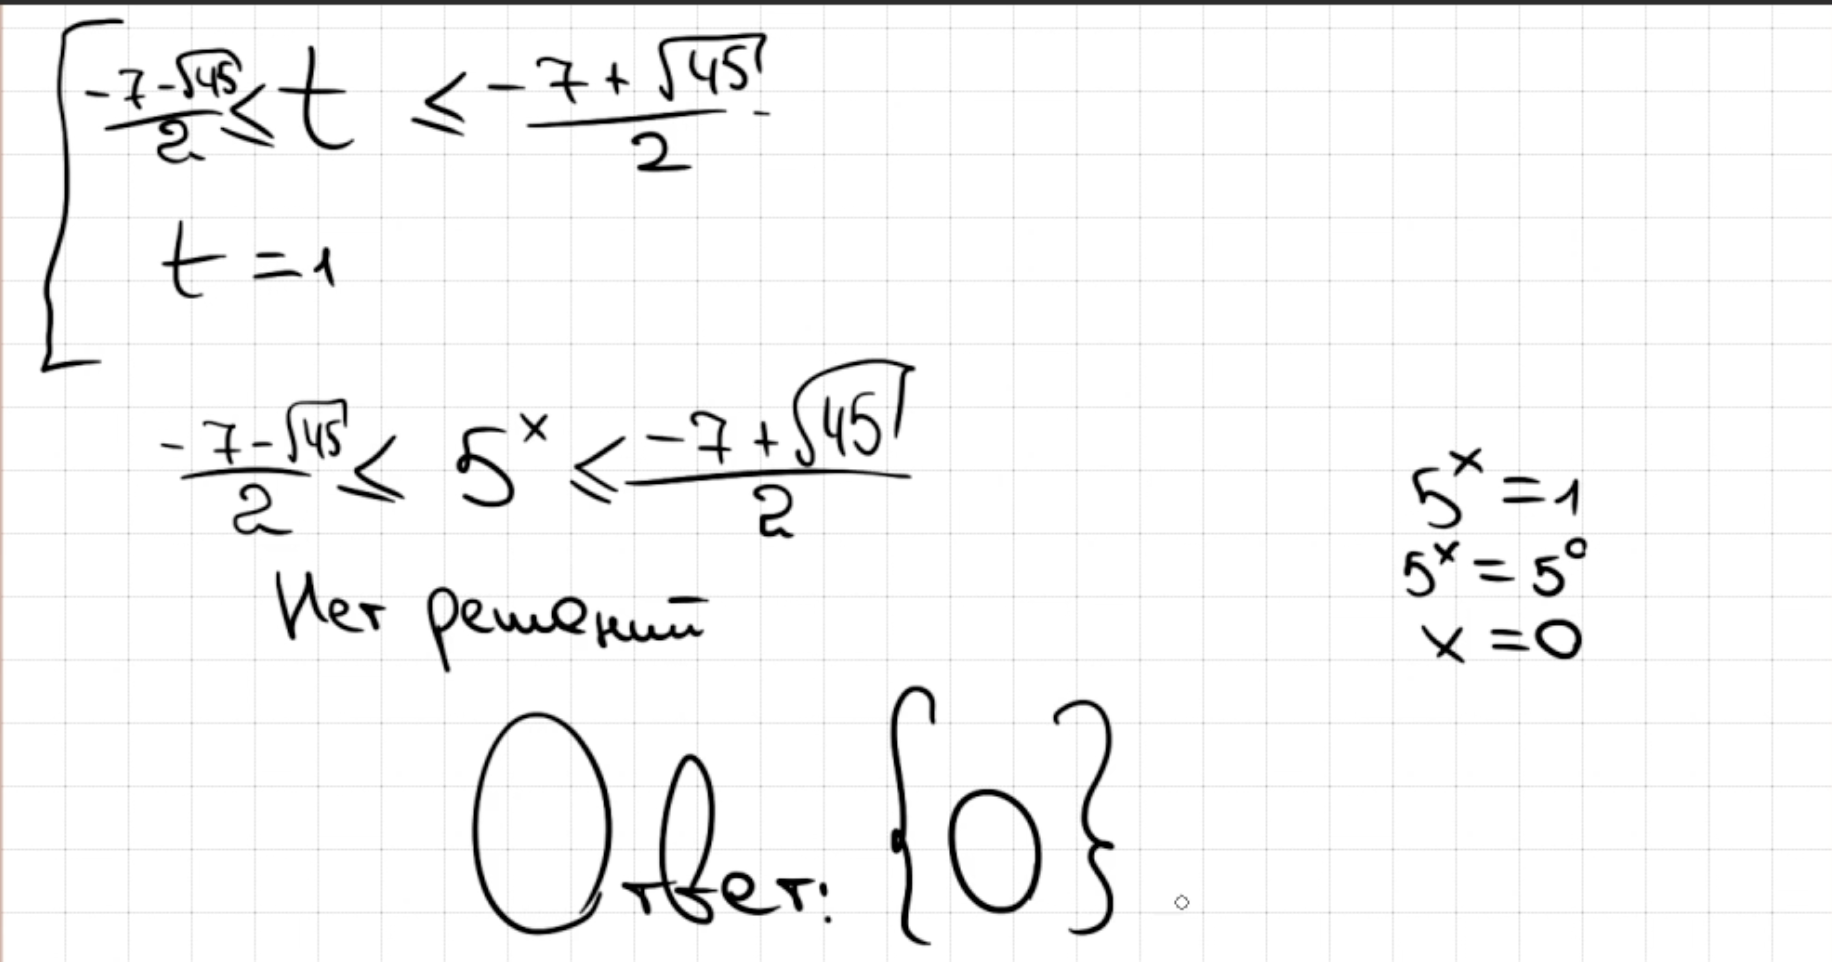 [ (-7-√45)/2 ≤ t ≤ (-7+√45)/2
t = 1
(-7-√45)/2 ≤ 5^x ≤ (-7+√45)/2
Нет решений
5^x = 1
5^x = 5^0
x = 0
Ответ: {0}